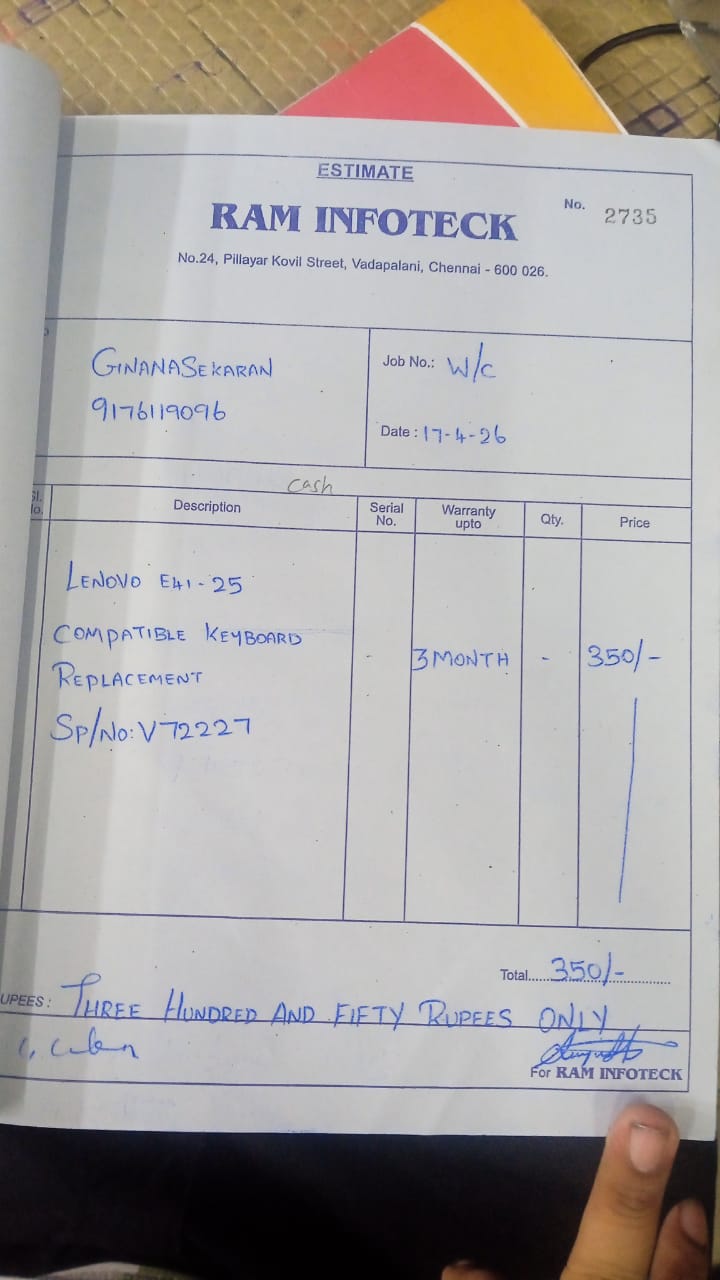 ESTIMATE
RAM INFOTECK
No. 2735
No.24, Pillayar Kovil Street, Vadapalani, Chennai - 600 026.
GINANASEKARAN
9176119096
Job No.: W/C
Date : 17-4-26
cash
Sl. No. Description Serial No. Warranty upto Qty. Price
LENOVO E41-25
COMPATIBLE KEYBOARD
REPLACEMENT
- 3 MONTH - 350/-
SP/NO: V72227
Total...... 350/-
UPEES : THREE HUNDRED AND FIFTY RUPEES ONLY
For RAM INFOTECK